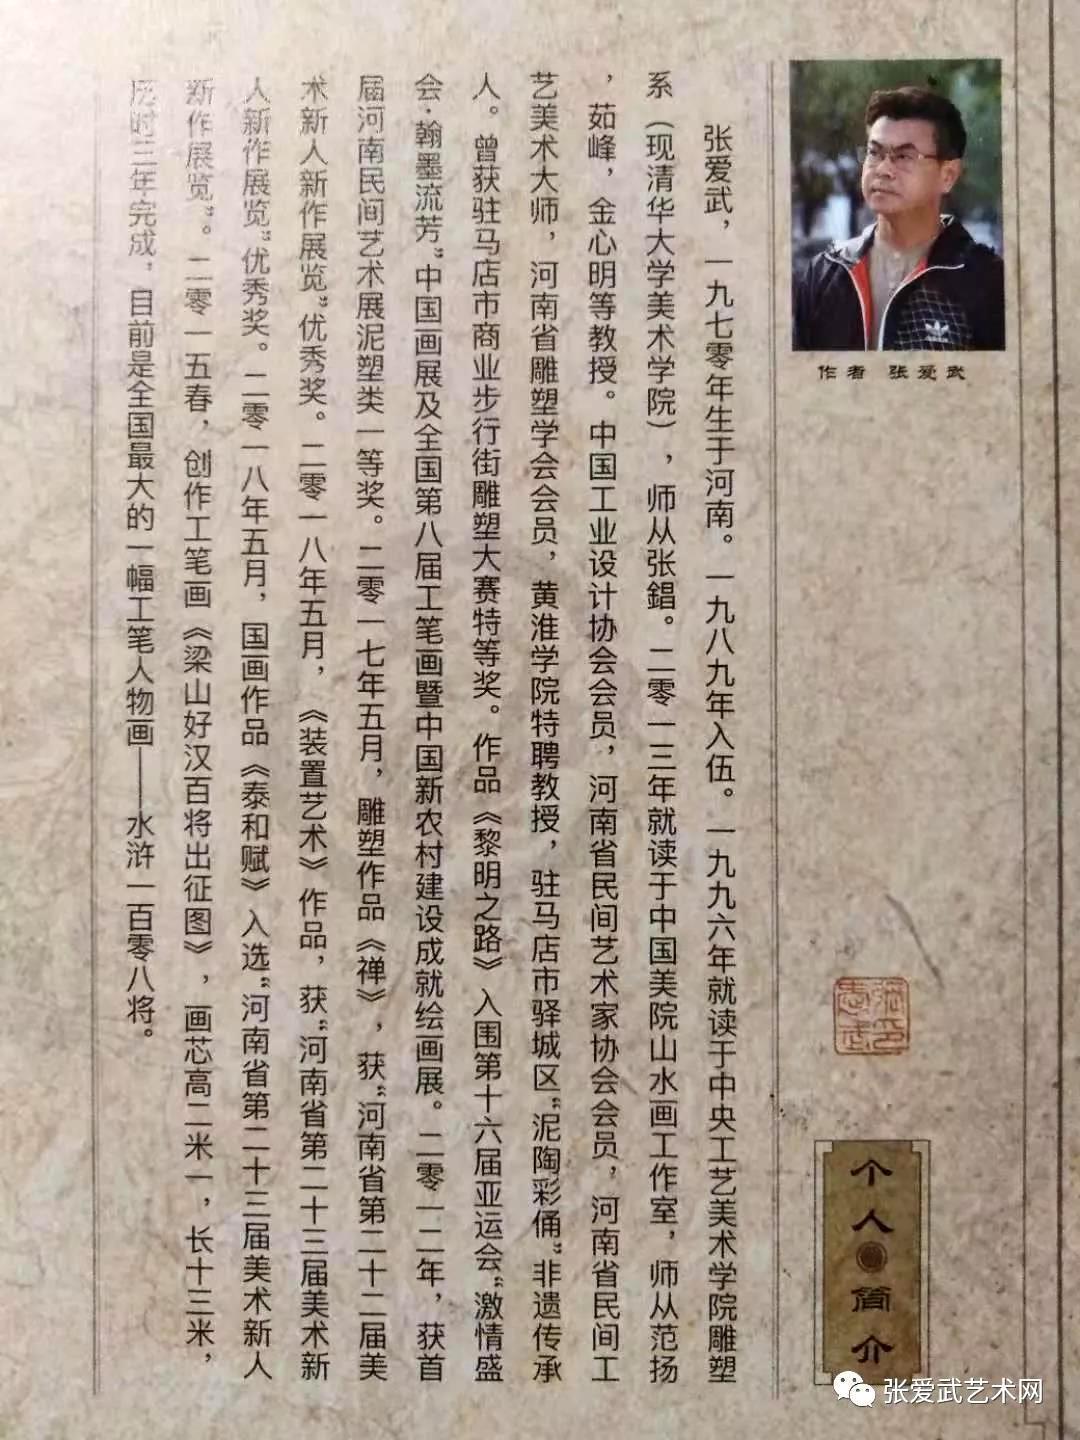 作者 张爱武
个人简介
张爱武，一九七零年生于河南。一九八九年入伍。一九九六年就读于中央工艺美术学院雕塑
系（现清华大学美术学院），师从张錩。二零一三年就读于中国美院山水画工作室，师从范扬
，茹峰，金心明等教授。中国工业设计协会会员，河南省民间艺术家协会会员，河南省民间工
艺美术大师，河南省雕塑学会会员，黄淮学院特聘教授，驻马店市驿城区“泥陶彩俑”非遗传承
人。曾获驻马店市商业步行街雕塑大赛特等奖。作品《黎明之路》入围第十六届亚运会“激情盛
会·翰墨流芳”中国画展及全国第八届工笔画暨中国新农村建设成就绘画展。二零一二年，获首
届河南民间艺术展泥塑类一等奖。二零一七年五月，雕塑作品《禅》，获“河南省第二十二届美
术新人新作展览”优秀奖。二零一八年五月，《装置艺术》作品，获“河南省第二十三届美术新
人新作展览”优秀奖。二零一八年五月，国画作品《泰和赋》入选“河南省第二十三届美术新人
新作展览”。二零一五春，创作工笔画《梁山好汉百将出征图》，画芯高二米一，长十三米，
历时三年完成，目前是全国最大的一幅工笔人物画——水浒一百零八将。
张爱武艺术网